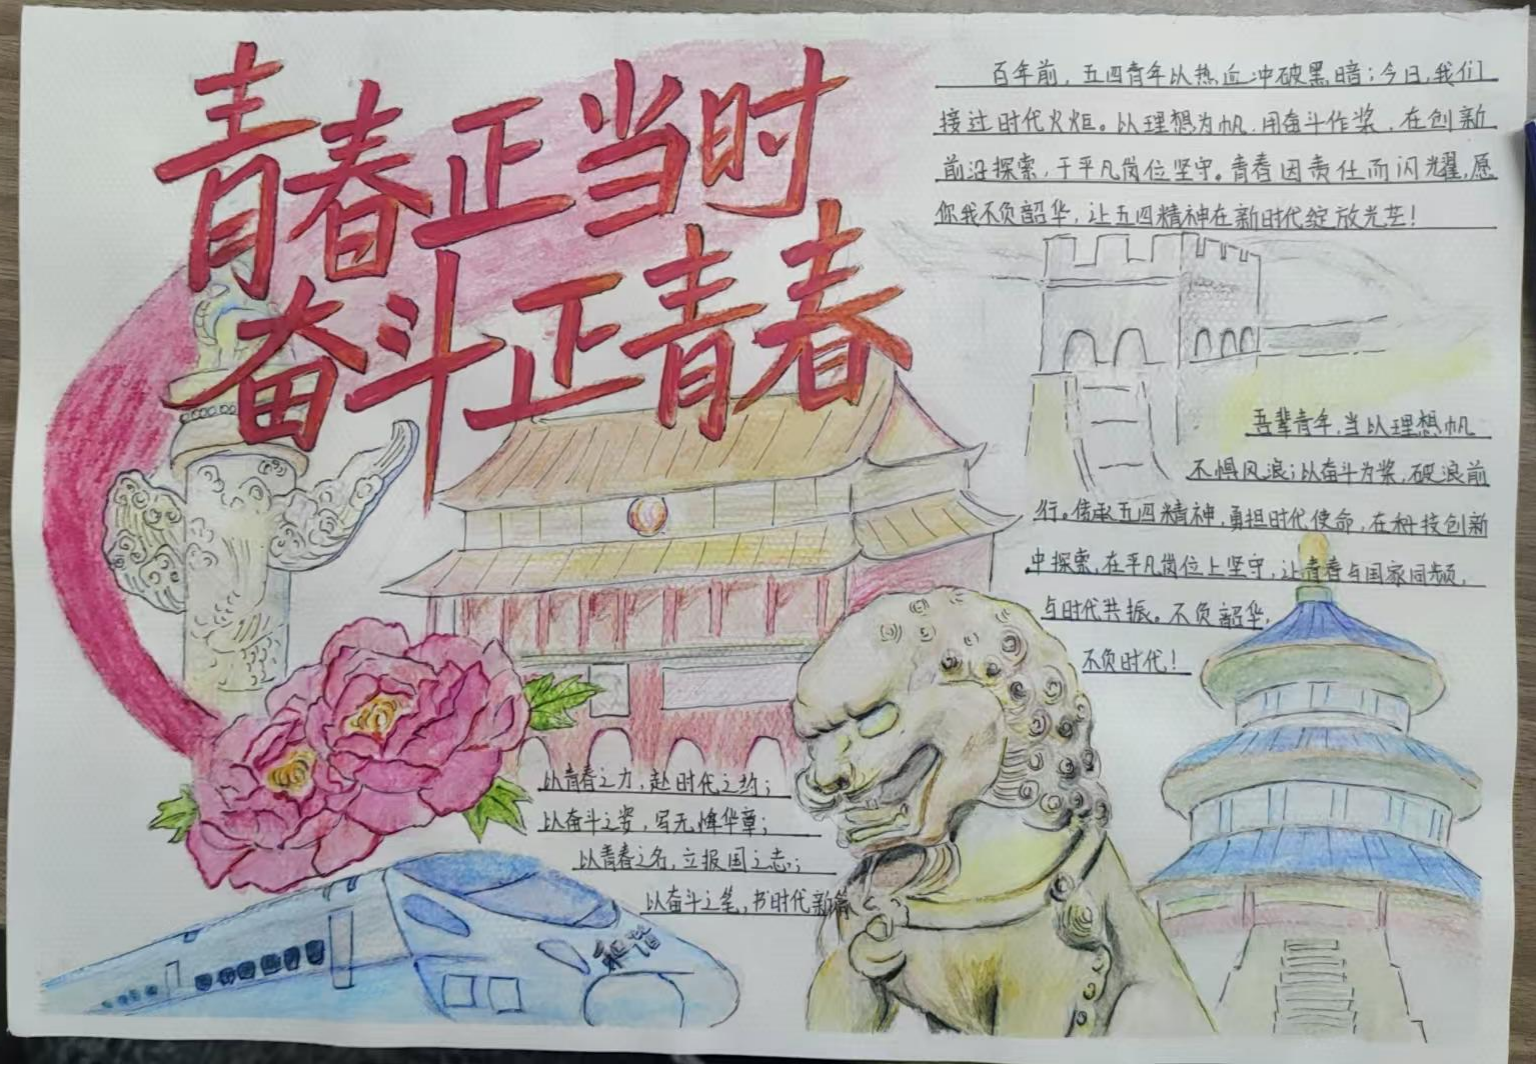 青春正当时
奋斗正青春
百年前，五四青年以热血冲破黑暗；今日，我们
接过时代火炬。以理想为帆，用奋斗作桨，在创新
前沿探索，于平凡岗位坚守。青春因责任而闪耀，愿
你我不负韶华，让五四精神在新时代绽放光芒！
吾辈青年，当以理想帆
不惧风浪；以奋斗为桨，破浪前
行。传承五四精神，勇担时代使命，在科技创新
中探索，在平凡岗位上坚守，让青春与国家同频，
与时代共振。不负韶华，
不负时代！
以青春之力，赴时代之约；
以奋斗之姿，写无悔华章；
以青春之名，立报国之志；
以奋斗之笔，书时代新篇
和谐